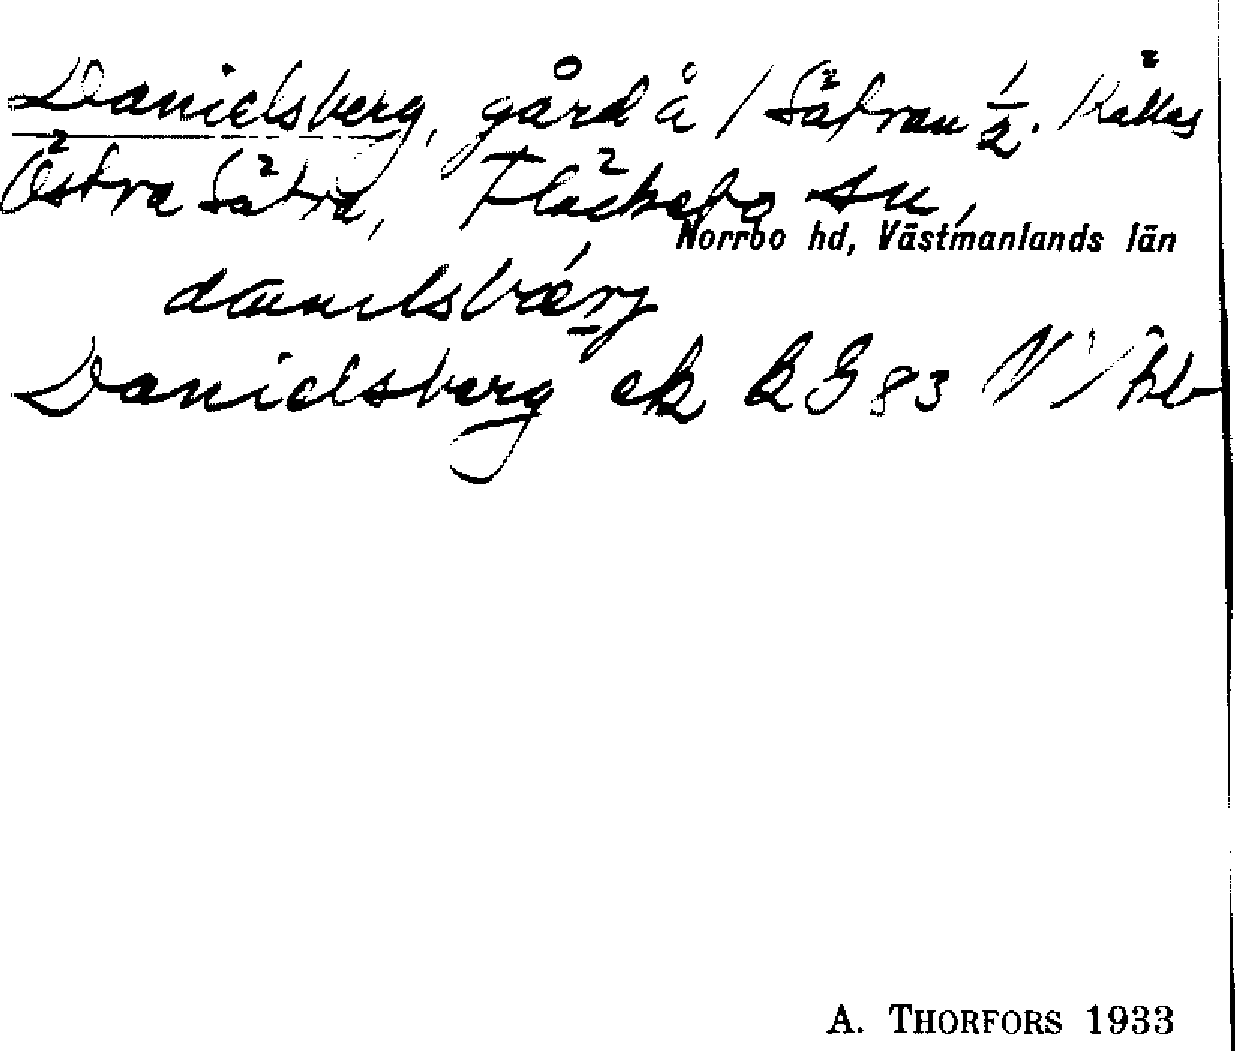 Danielsberg, gård å / Sätran 1/2. Kallas
Östra Sätra, Fläckebo sn,
Norrbo hd, Västmanlands län
danilsbærj
Danielsberg ek BG 83 NV/hb
A. THORFORS 1933